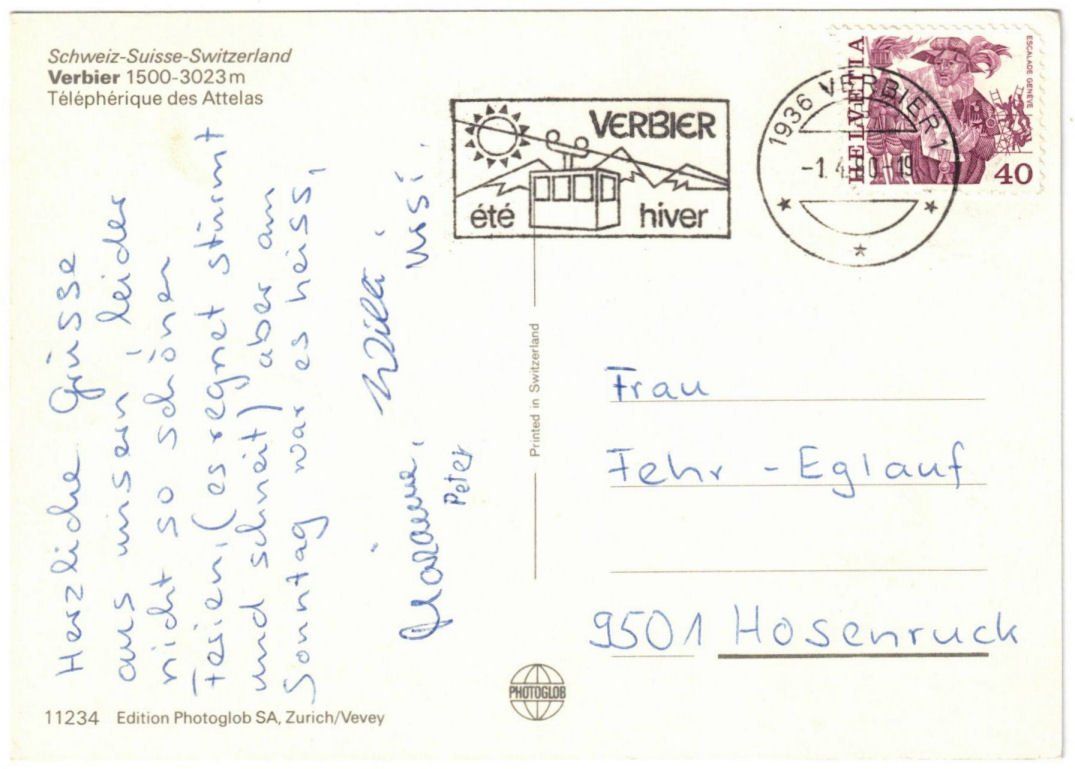 Schweiz-Suisse-Switzerland
Verbier 1500-3023 m
Téléphérique des Attelas
Herzliche Grüsse
aus unsern, leider
nicht so schönen
Ferien, (es regnet stürmt
und schneit) aber am
Sonntag war es heiss,
Willi
Peter
VERBIER
été hiver
1936 VERBIER 1
-1.4.80-19
HELVETIA
ESCALADE GENÈVE
40
Printed in Switzerland
Frau
Fehr - Eglauf
9501 Hosenruck
PHOTOGLOB
11234 Edition Photoglob SA, Zurich/Vevey